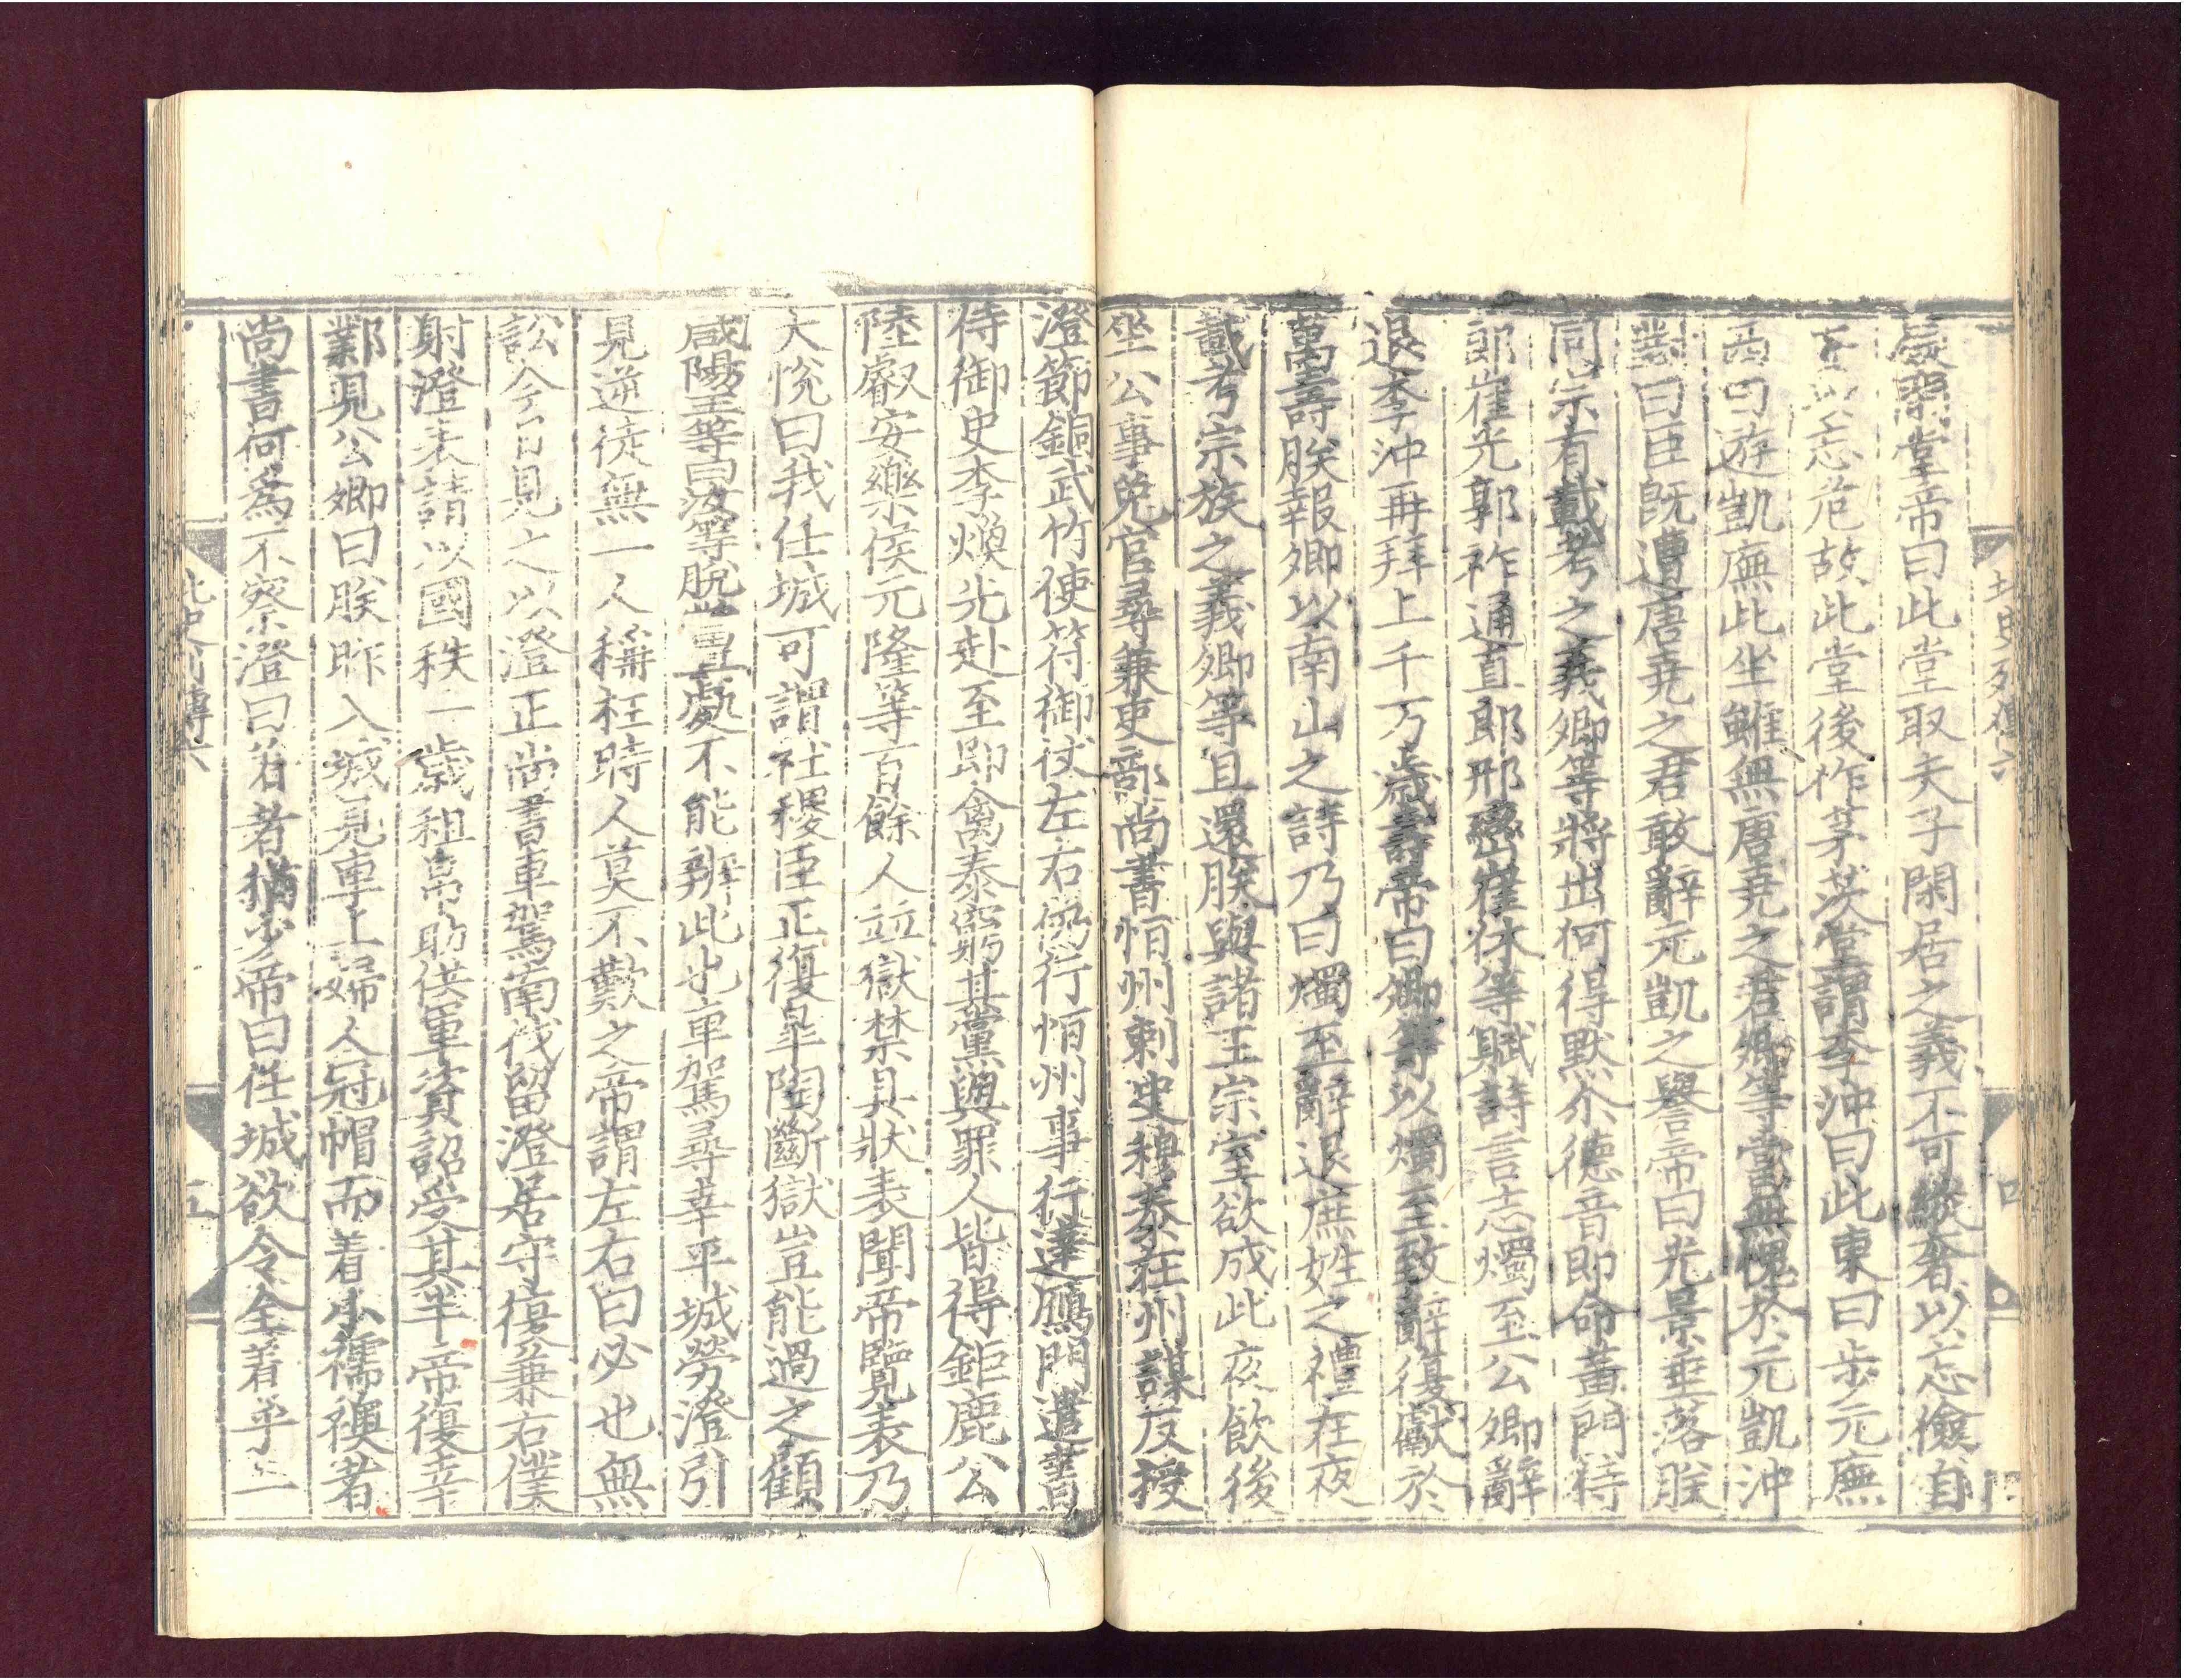 北史列傳六
四
宴熙堂帝曰此堂取夫子閑居之義不可縱奢以忘儉自
忘危故此堂後作茅茨堂謂李沖曰此東曰步元廡
西曰遊凱廡此坐雖無唐堯之君卿等當無愧於元凱沖
對曰臣旣遭唐堯之君敢辭元凱之譽帝曰光景垂落朕
同宗有載考之義卿等將出何得默尒德音即命黃門侍
郎崔光郭祚通直郎邢巒崔休等賦詩言志燭至公卿辭
退李沖再拜上千万歲壽帝曰卿等以燭至致辭復獻於
萬壽朕報卿以南山之詩乃曰燭至辭退庶姓之禮在夜
載考宗族之義卿等且還朕與諸王宗室欲成此夜飲後
坐公事免官尋兼吏部尚書恒州刺史穆泰在州謀反授
澄節銅武竹使符御仗左右仍行恒州事行達鴈門遣書
侍御史李煥先赴至即禽泰窮其黨與罪人皆得鉅鹿公
陸叡安樂侯元隆等百餘人竝獄禁具狀表聞帝覽表乃
大悅曰我任城可謂社稷臣正復皐陶斷獄豈能過之顧
咸陽王等曰汝等脫當其處不能辦此也車駕尋幸平城勞澄引
見逆徒無一人稱枉時人莫不歎之帝謂左右曰必也無
訟今日見之以澄正尚書車駕南伐留澄居守復兼右僕
射澄表請以國秩一歲租帛助供軍資詔受其半帝復幸
鄴見公卿曰朕昨入城見車上婦人冠帽而着小襦襖者
尚書何爲不察澄曰着者猶少帝曰任城欲令全着乎一
北史列傳六
五